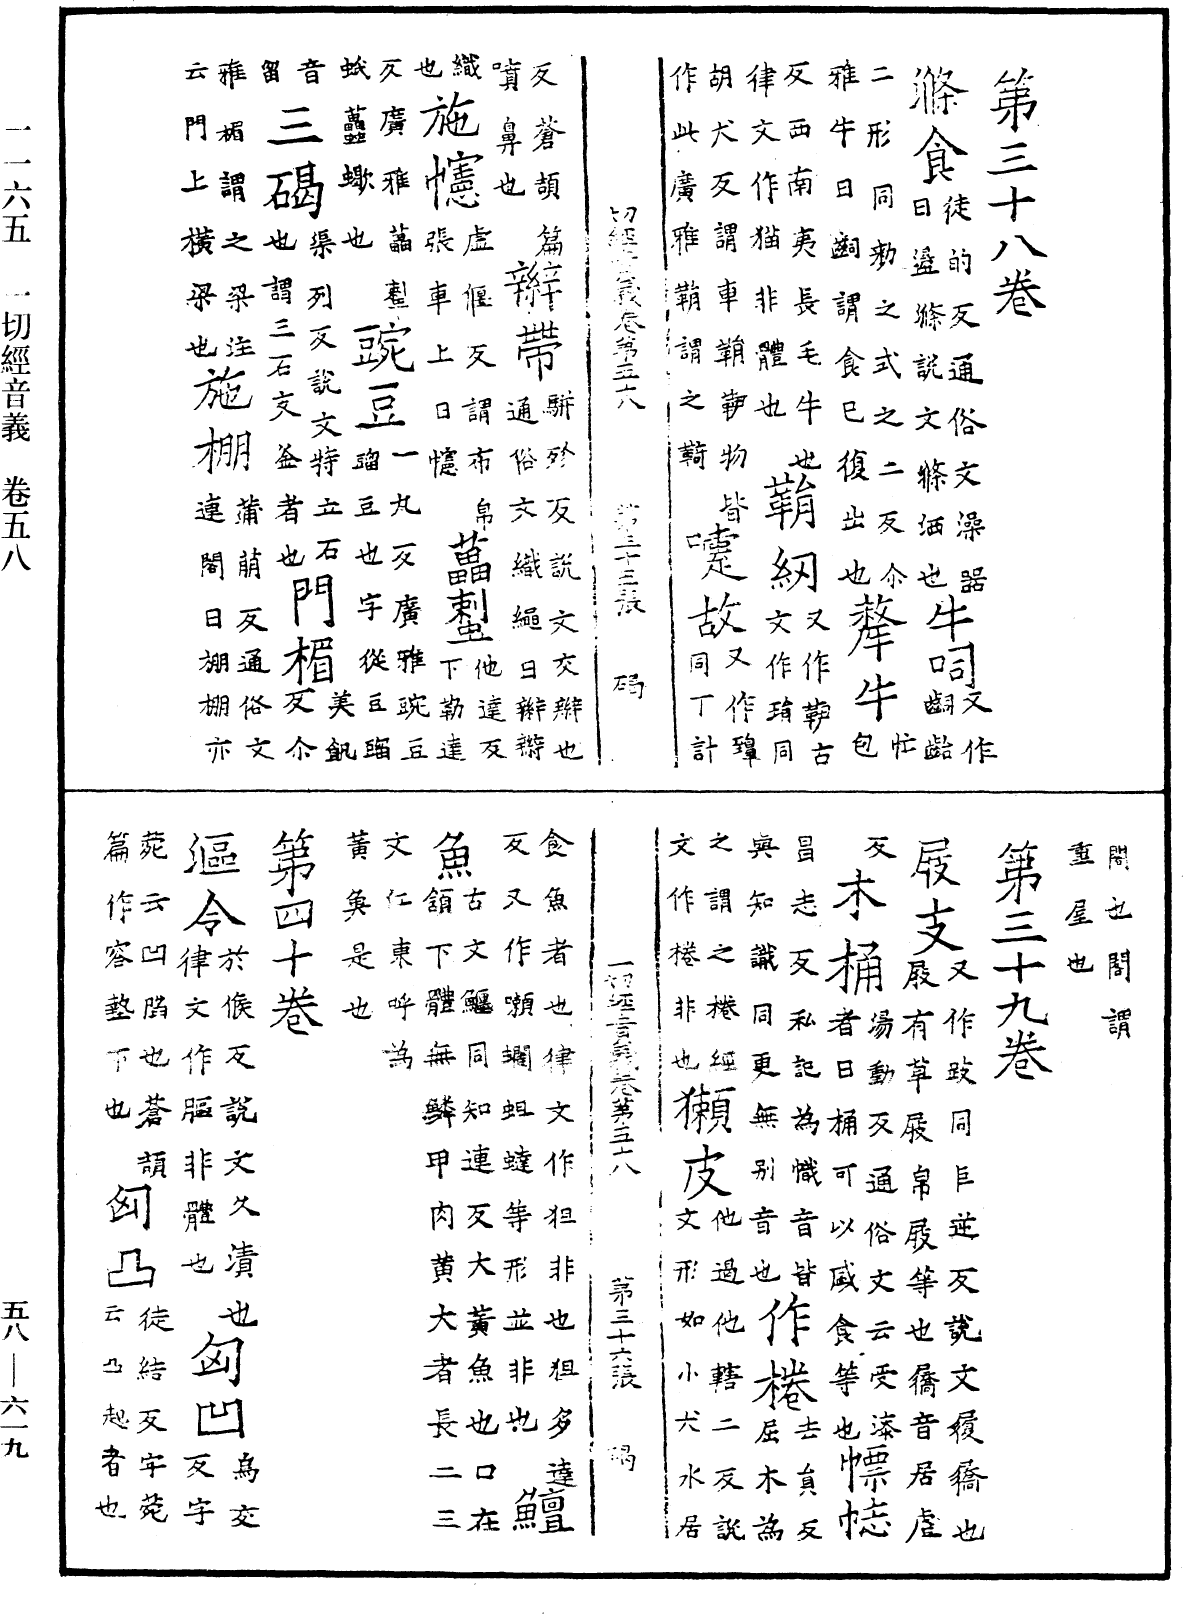 第三十八卷
滌食徒的反通俗文澡器
曰盪滌說文滌洒也牛呞文作
齝齡
二形同勑之式之二反尒
雅牛曰齝謂食已復出也犛牛亡
包
反西南夷長毛牛也
律文作猫非體也鞘紖又作靷古
文作㻇同
胡犬反謂車鞘靷物皆
作此廣雅鞘謂之䩭嚏故又作𤸪
同丁計
反蒼頡篇
噴鼻也辮帶駢殄反說文交辮也
通俗文織繩曰辮辮
織
也施幰虛偃反謂布帛
張車上曰幰蠆𧍒他達反
下勒達
反廣雅蠆𧍒
蚔蠚蠍也豌豆一丸反廣雅豌豆
䝁豆也字從豆䝁
音
留三碣渠列反說文特立石
也謂三石支釜者也門楣美飢
反尒
雅楣謂之梁注
云門上橫梁也施棚蒲萠反通俗文
連閣曰棚棚亦
閣也閣謂
重屋也
第三十九卷
屐支又作跂同巨逆反說文屐屩也
屐有草屐帛屐等也屩音居虐
反
木桶湯動反通俗文云受漆
者曰桶可以盛食等也幖幟
昌志反私記為幟音皆去負反
與知識同更無別音也作棬屈木為
之謂之棬經
文作棬非也獺皮他過他轄二反說
文形如小犬水居
食魚者也律文作狚非也狚多達
反又作嚪蠋蛆蟽等形並非也鱣
魚古文鱷同知連反大黃魚也口在
頷下體無鱗甲肉黃大者長二三
文仁東呼為
黃魚是也
第四十卷
漚令於候反說文久漬也
律文作膒非體也匈凹烏交
反字
菀云凹陷也蒼頡
篇作容墊下也匈凸徒結反字菀
云凸起者也
一切經音義卷第五八　第三十三張　碣
一切經音義卷第五八　第三十六張　碣
一一六五　一切經音義　卷五八
五八—六一九